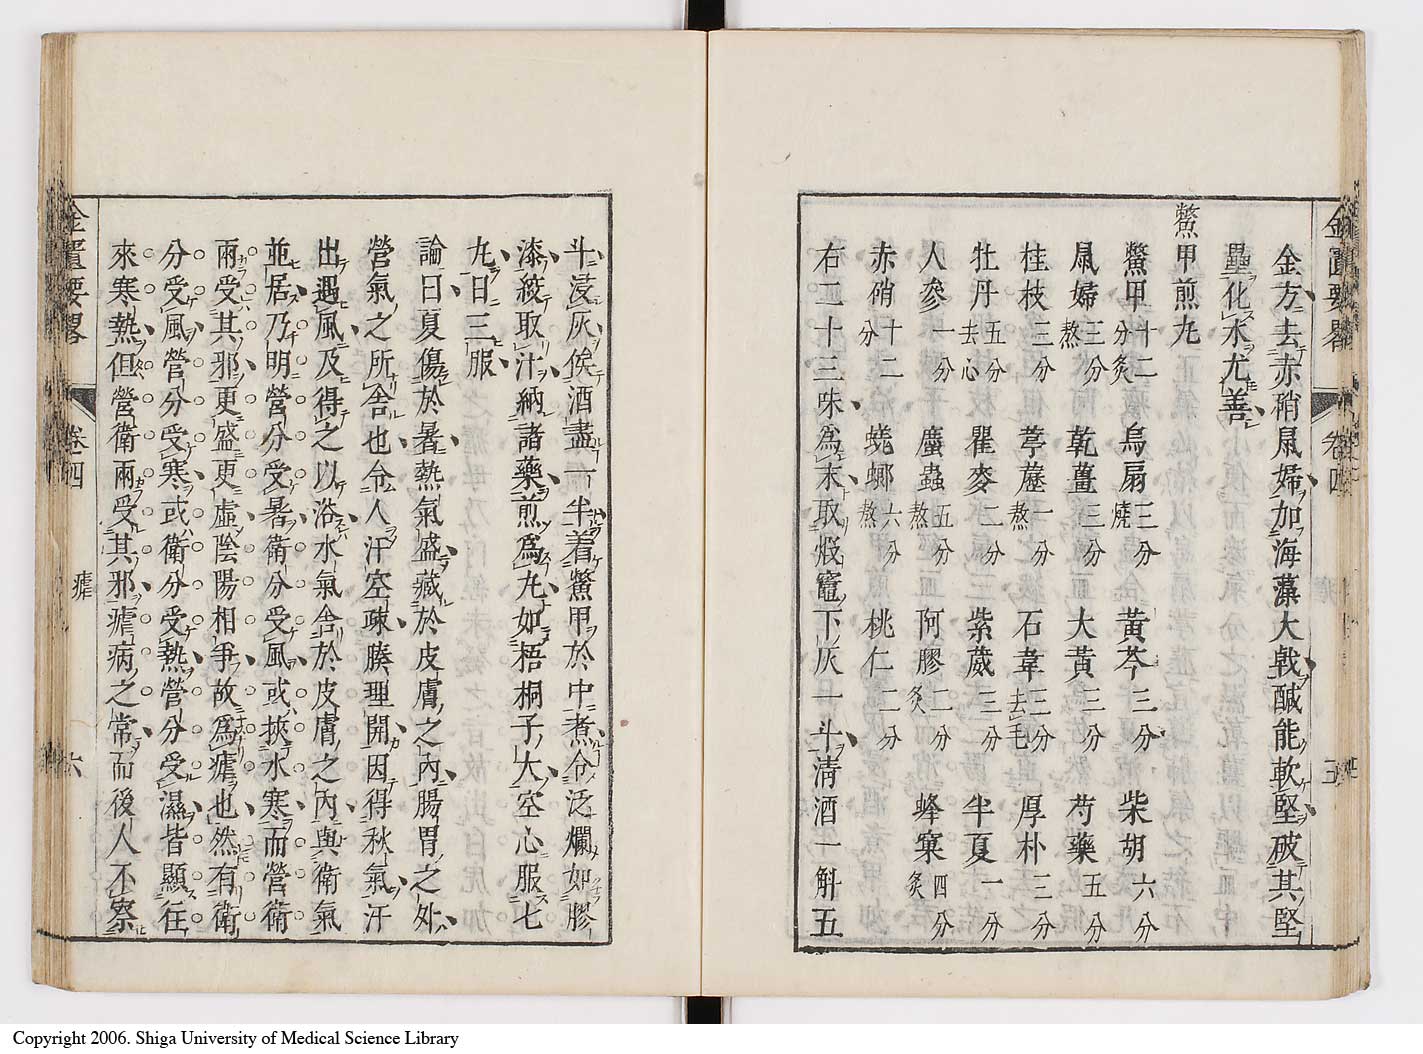 金匱要畧 卷四 五
金方去赤硝鼠婦加海藻大戟醎能軟堅破其堅
壘化水尤善
鱉甲煎丸
鱉甲十二分炙 烏扇三分燒 黃芩三分 柴胡六分
鼠婦三分熬 乾薑三分 大黃三分 芍藥五分
桂枝三分 葶藶一分熬 石韋三分去毛 厚朴三分
牡丹五分去心 瞿麥二分 紫葳三分 半夏一分
人參一分 䗪蟲五分熬 阿膠三分炙 蜂窠四分炙
赤硝十二分 蜣螂六分熬 桃仁二分
右二十三味為末取煅竈下灰一斗淸酒一斛五
斗浸灰候酒盡一半着鱉甲於中煮令泛爛如膠
漆絞取汁納諸藥煎為丸如梧桐子大空心服七
丸日三服
論曰夏傷於暑熱氣盛藏於皮膚之內腸胃之外
營氣之所舍也令人汗空疎腠理開因得秋氣汗
出遇風及得之以浴水氣舍於皮膚之內與衛氣
並居乃明營分受暑衛分受風或挾水寒而營衛
兩受其邪更盛更虛陰陽相爭故為瘧也然有衛
分受風營分受寒或衛分受熱營分受濕皆顯往
來寒熱但營衛兩受其邪瘧病之常而後人不察
金匱要畧 卷四 瘧 六
Copyright 2006. Shiga University of Medical Science Library